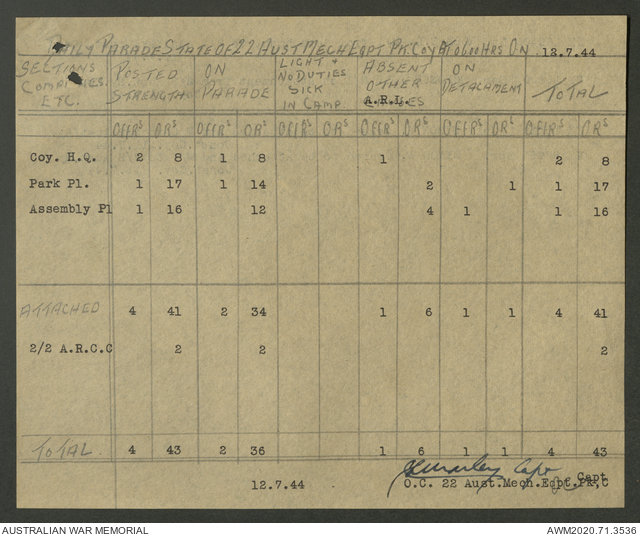 DAILY PARADE STATE OF 22 AUST MECH EQPT PK. COY TO 0600 HRS ON 12.7.44
SECTIONS COMPANIES ETC. POSTED STRENGTH ON PARADE LIGHT + NO DUTIES SICK IN CAMP ABSENT OTHER A.R.L. ON DETACHMENT TOTAL
OFFRS ORS OFFRS ORS OFFRS ORS OFFRS ORS OFFRS ORS OFFRS ORS
Coy. H.Q. 2 8 1 8 1 2 8
Park Pl. 1 17 1 14 2 1 1 17
Assembly Pl 1 16 12 4 1 1 16
ATTACHED 4 41 2 34 1 6 1 1 4 41
2/2 A.R.C.C 2 2 2
TOTAL. 4 43 2 36 1 6 1 1 4 43
Capt Capt
12.7.44 O.C. 22 Aust.Mech.Eqpt.Pk,C
AUSTRALIAN WAR MEMORIAL AWM2020.71.3536